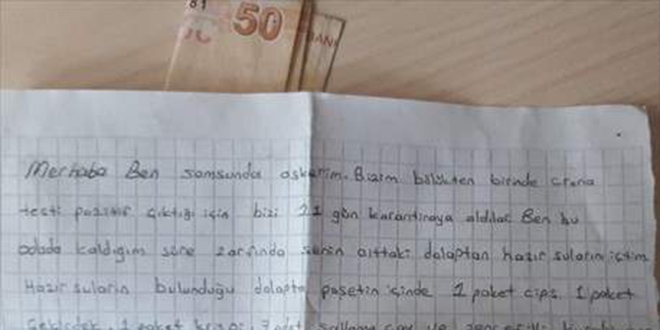 81
50
BANK
Merhaba Ben samsunda askerim. Bizim bölükten birinde crona
testi pozitif çıktığı için bizi 21 gün karantinaya aldılar Ben bu
odada kaldığım süre zarfında senin alttaki dolaptan hazır suların içtim
Hazır suların bulunduğu dolapta poşetin içinde 1 paket cips 1 paket
çekirdek 1 paket